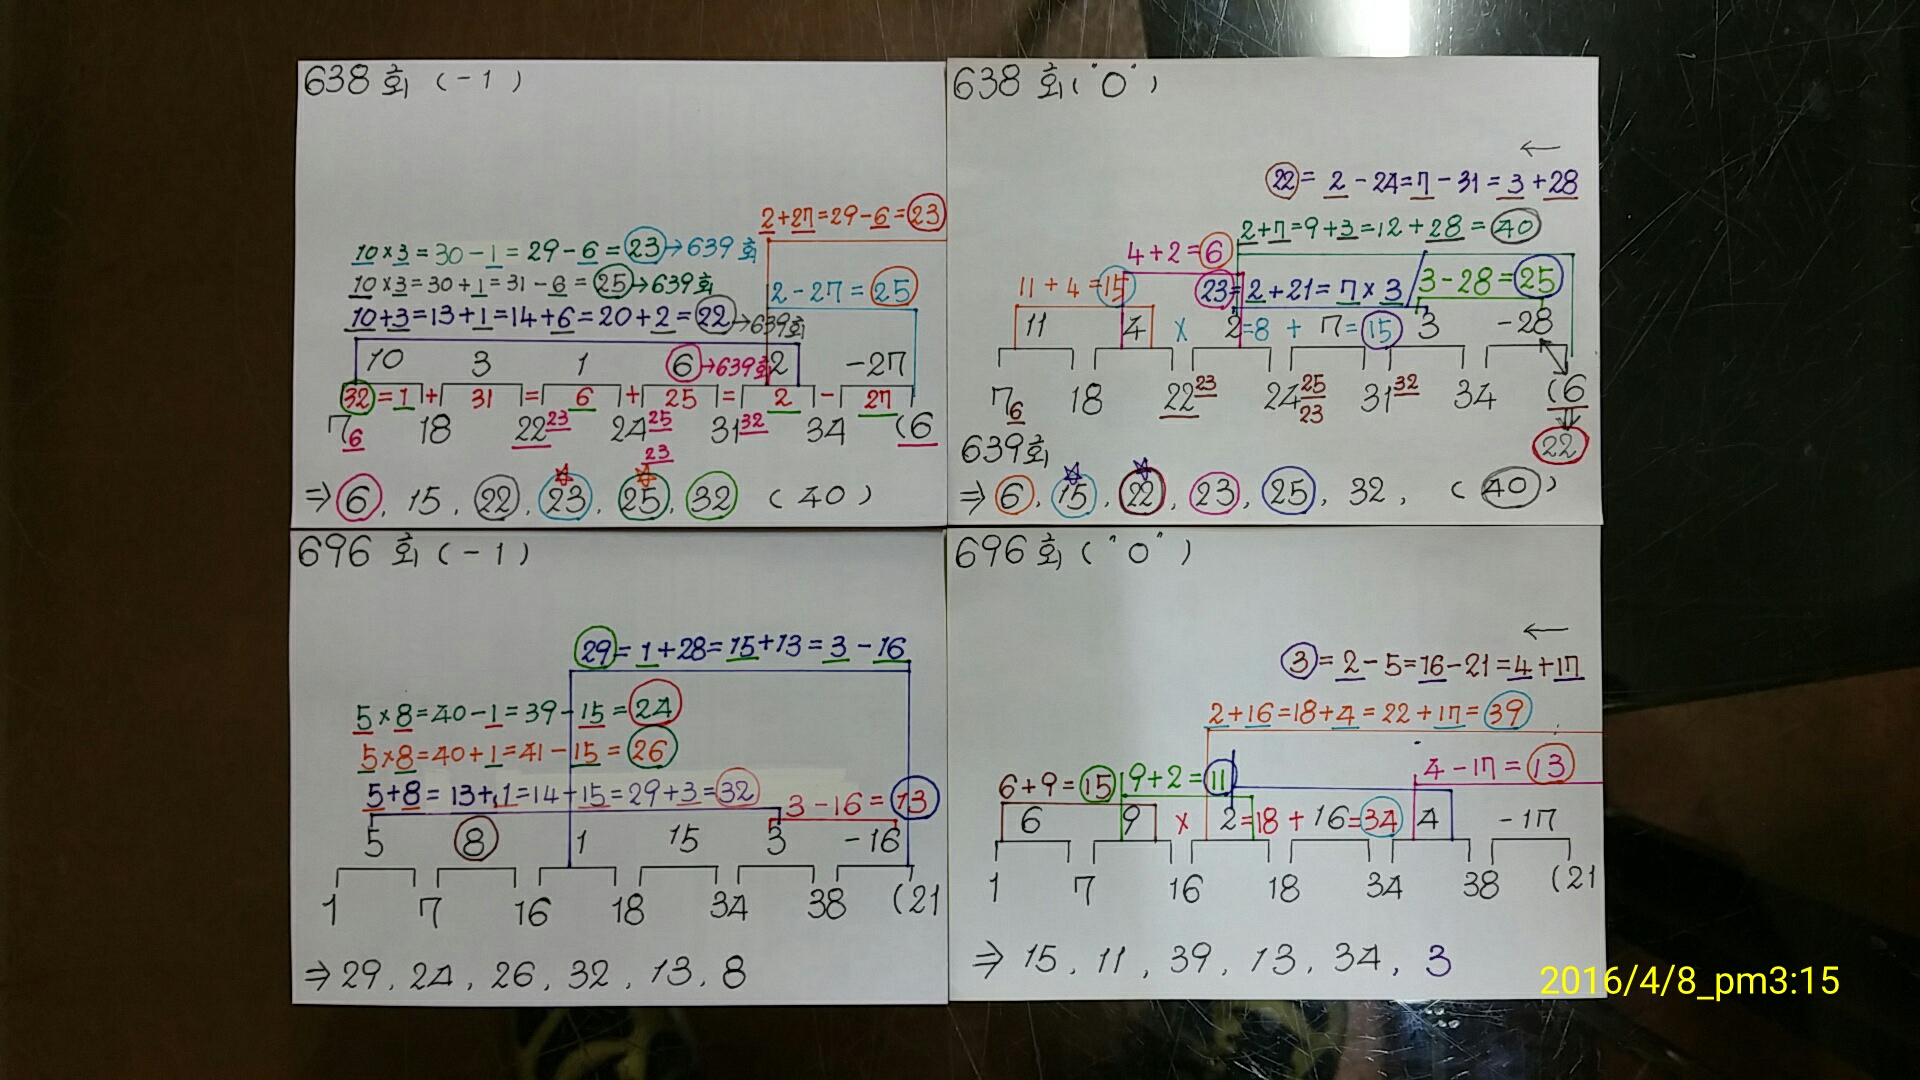 638회 (-1)
2+27=29-6=23
10×3=30-1=29-6=23→639회
10×3=30+1=31-6=25→639회
2-27=25
10+3=13+1=14+6=20+2=22→639회
10 3 1 6→639회 2 -27
32=1+31=6+25=2-27
7 6 18 22 23 24 25 23 31 32 34 (6
⇒ 6, 15, 22, 23, 25, 32 (40)
638회("0")
←
22=2-24=7-31=3+28
2+7=9+3=12+28=40
4+2=6
11+4=15
23=2+21=7×3
3-28=25
11 4 × 2=8+7=15 3 -28
7 6 18 22 23 24 25 23 31 32 34 (6
22
639회
⇒ 6, 15, 22, 23, 25, 32, (40)
696회(-1)
29=1+28=15+13=3-16
5×8=40-1=39-15=24
5×8=40+1=41-15=26
5+8=13+1=14+15=29+3=32
3-16=13
5 8 1 15 3 -16
1 7 16 18 34 38 (21
⇒ 29, 24, 26, 32, 13, 8
696회("0")
←
3=2-5=16-21=4+17
2+16=18+4=22+17=39
6+9=15
9+2=11
4-17=13
6 9 × 2=18+16=34 4 -17
1 7 16 18 34 38 (21
⇒ 15, 11, 39, 13, 34, 3
2016/4/8_pm3:15